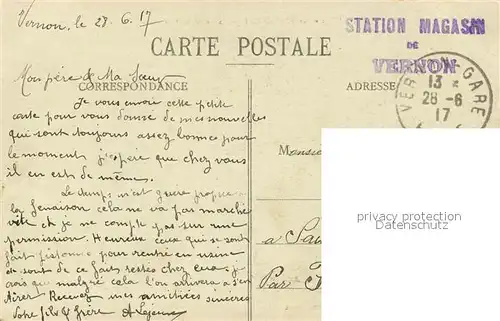 Vernon, le 28. 6. 17
STATION MAGASIN
DE
VERNON
CARTE POSTALE
VERNON-GARE
13
28-6
17
Mon père & Ma Sœur
CORRESPONDANCE
ADRESSE
Je vous envoie cette petite
carte pour vous donner de mes nouvelles
qui sont toujours assez bonnes pour
le moment, j'espère que chez vous
il en est de même.
Monsie
Le temps n'est guère propice
la fenaison cela ne va pas marcher
vite et je ne compte pas sur une
permission. Heureux ceux qui se sont
fait pistonné pour rentrer en usine
ils sont de ce fait restés chez eux. je
crois que malgré cela l'on arrivera à s'en
tirer Recevez mes amitiées sincères
Votre fils & frère A Lejeune
à Sai
Par
privacy protection
watermark